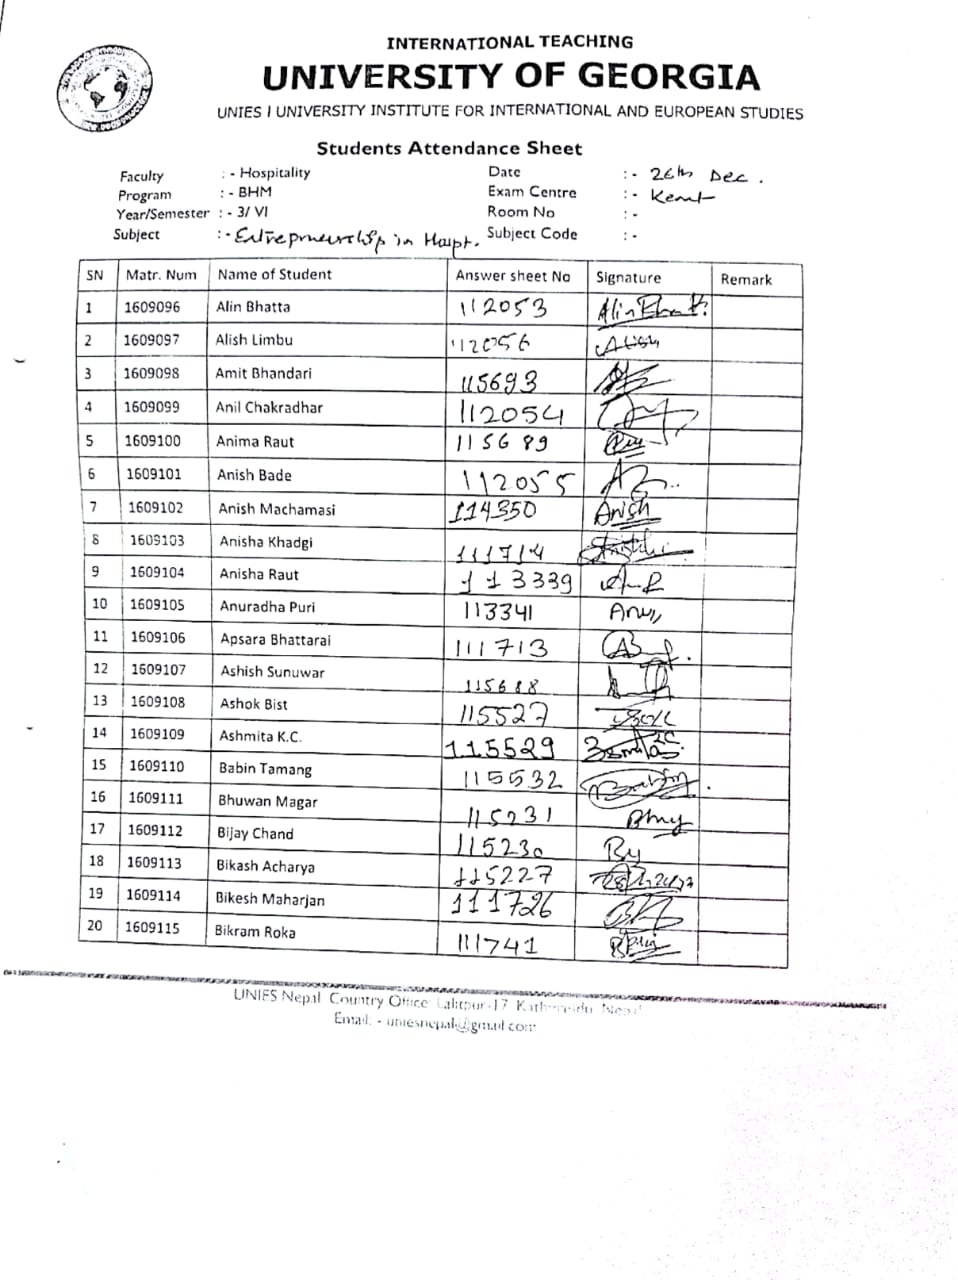 INTERNATIONAL TEACHING
UNIVERSITY OF GEORGIA
UNIES | UNIVERSITY INSTITUTE FOR INTERNATIONAL AND EUROPEAN STUDIES
Students Attendance Sheet
Faculty : - Hospitality Date : - 26th Dec.
Program : - BHM Exam Centre : - Kent
Year/Semester : - 3/ VI Room No : -
Subject : - Entrepreneurship in Hospt. Subject Code : -
SN Matr. Num Name of Student Answer sheet No Signature Remark
1 1609096 Alin Bhatta 112053 Alin Bhatt.
2 1609097 Alish Limbu 112056 Alish
3 1609098 Amit Bhandari 115693
4 1609099 Anil Chakradhar 112054
5 1609100 Anima Raut 115689
6 1609101 Anish Bade 112055
7 1609102 Anish Machamasi 114350 Anish
8 1609103 Anisha Khadgi 111714
9 1609104 Anisha Raut 113339 A-R
10 1609105 Anuradha Puri 113341 Anu
11 1609106 Apsara Bhattarai 111713
12 1609107 Ashish Sunuwar 115688
13 1609108 Ashok Bist 115527
14 1609109 Ashmita K.C. 115529
15 1609110 Babin Tamang 115532
16 1609111 Bhuwan Magar 115231
17 1609112 Bijay Chand 115230
18 1609113 Bikash Acharya 115227
19 1609114 Bikesh Maharjan 111726
20 1609115 Bikram Roka 111741
UNIES Nepal Country Office: Lalitpur-17, Kathmandu, Nepal
Email: - uniesnepal@gmail.com